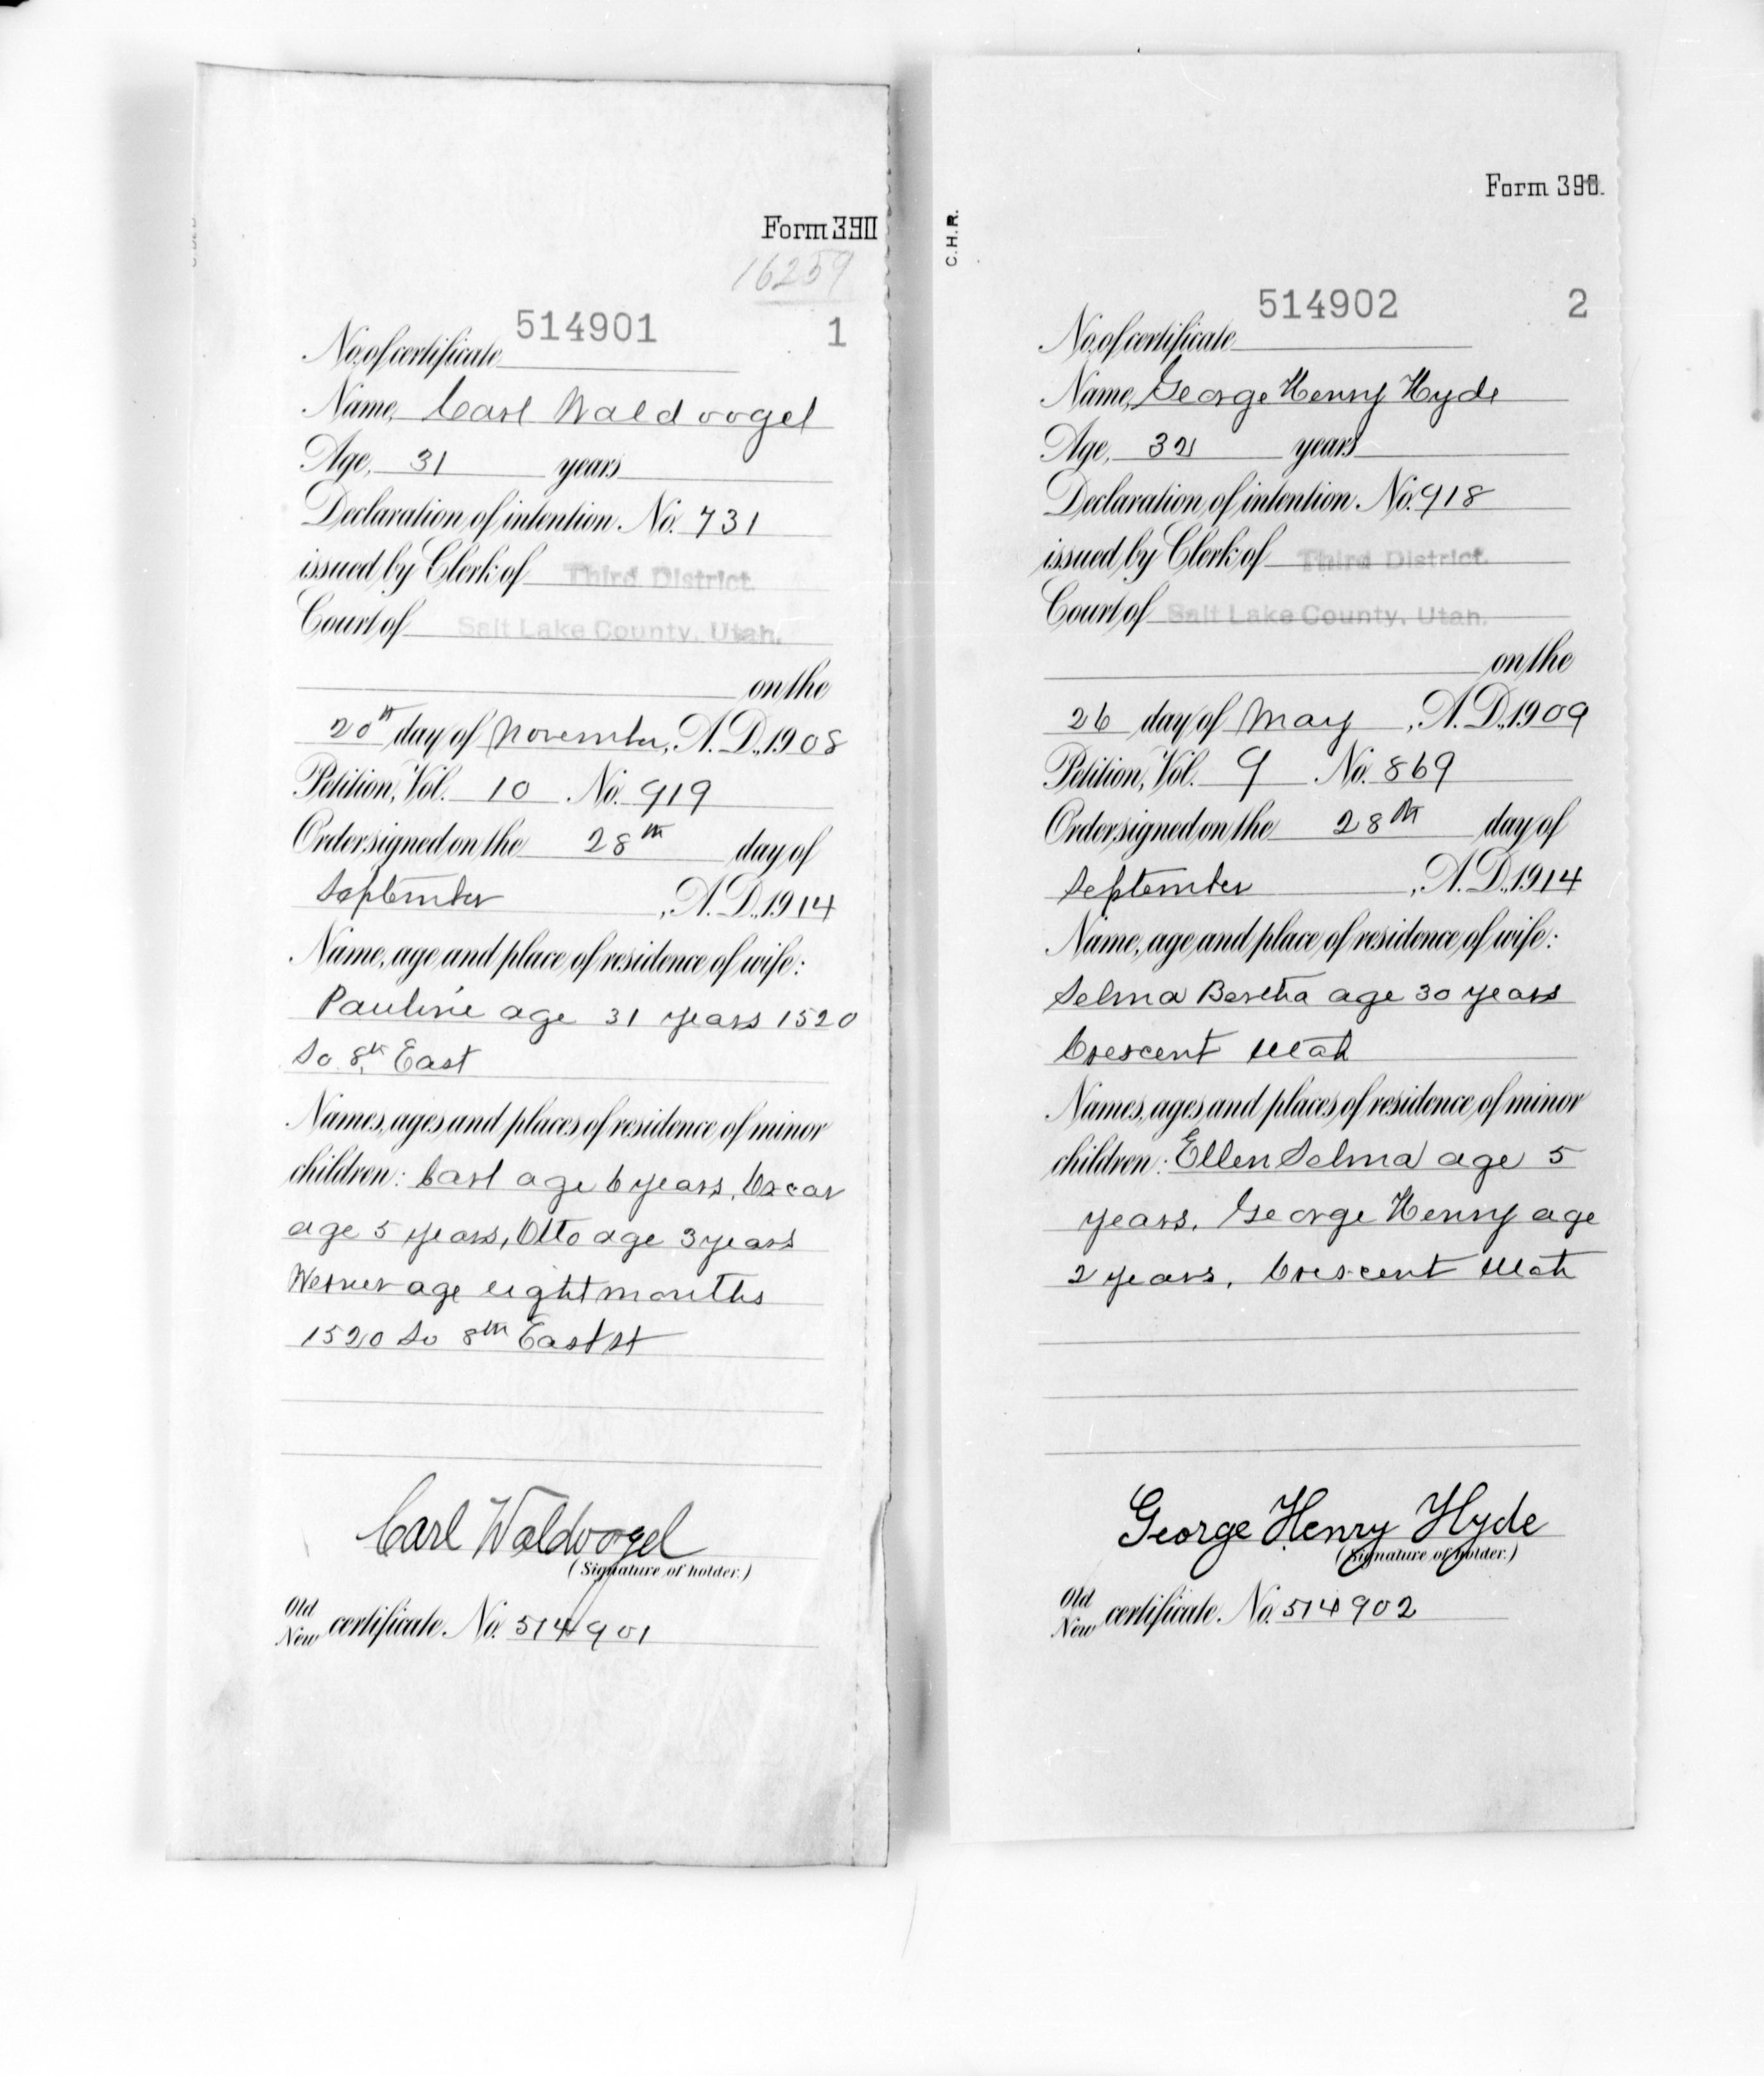 Form 390
16259
514901 1
No. of certificate
Name, Carl Waldvogel
Age, 31 years
Declaration of intention No. 731
issued by Clerk of Third District
Court of Salt Lake County, Utah.
on the
20th day of November, A.D. 1908
Petition, Vol. 10 No. 919
Order signed on the 28th day of
September, A.D. 1914
Name, age and place of residence of wife:
Pauline age 31 years 1520
So 8th East
Names, ages and places of residence of minor
children: Carl age 6 years, Oscar
age 5 years, Otto age 3 years
Werner age eight months
1520 So 8th East St
Carl Waldvogel
(Signature of holder.)
Old
New certificate No. 514901
Form 390.
C.H.R.
514902 2
No. of certificate
Name, George Henry Hyde
Age, 32 years
Declaration of intention No. 918
issued by Clerk of Third District.
Court of Salt Lake County, Utah.
on the
26 day of May, A.D. 1909
Petition, Vol. 9 No. 869
Order signed on the 28th day of
September, A.D. 1914
Name, age and place of residence of wife:
Selma Bertha age 30 years
Crescent Utah
Names, ages and places of residence of minor
children: Ellen Selma age 5
years. George Henry age
2 years, Crescent Utah
George Henry Hyde
(Signature of holder.)
Old
New certificate No. 514902